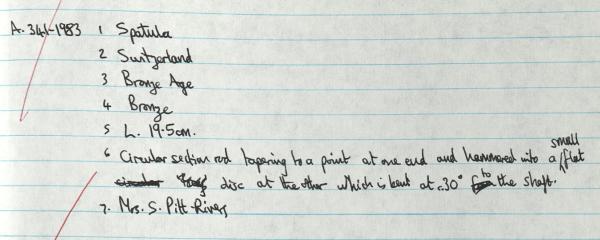 A.341-1983 1 Spatula
2 Switzerland
3 Bronze Age
4 Bronze
5 L. 19.5cm.
6 Circular section rod tapering to a point at one end and hammered into a small flat
disc at the other which is bent at c.30° to the shaft.
7. Mrs. S. Pitt-Rivers